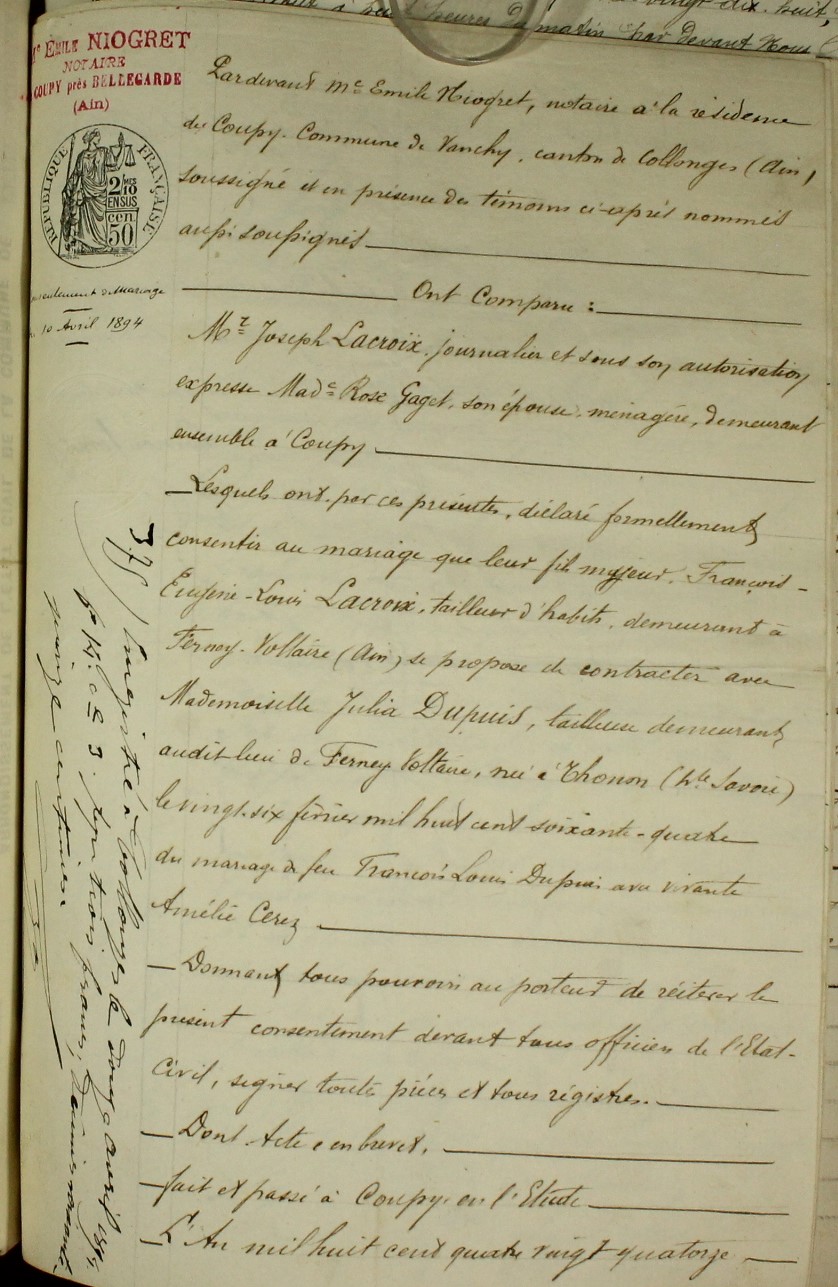 vingt dix-huit,
heures du matin par devant Nous
Me EMILE NIOGRET
NOTAIRE
COUPY près BELLEGARDE
(Ain)
RÉPUBLIQUE FRANÇAISE
2/10
EN SUS
50
cen
Consentement à Mariage
10 Avril 1894
Pardevant Me Emile Niogret, notaire à la résidence
de Coupy. Commune de Vanchy, canton de Collonges (Ain)
soussigné et en présence des témoins ci-après nommés
aussi soussignés
Ont Comparu :
Mr Joseph Lacroix, journalier et sous son autorisation
expresse Made Rose Gaget, son épouse, ménagère, demeurant
ensemble à Coupy
Lesquels ont, par ces présentes, déclaré formellement
consentir au mariage que leur fils majeur, François-
Eugène-Louis Lacroix, tailleur d'habits, demeurant à
Ferney-Voltaire (Ain) se propose de contracter avec
Mademoiselle Julia Dupuis, tailleuse demeurant
audit lieu de Ferney Voltaire, née à Thonon (hte Savoie)
le vingt-six février mil huit cent soixante-quatre
du mariage de feu François Louis Dupuis avec vivante
Amélie Cerez
Donnant tous pouvoirs au porteur de réiterer le
présent consentement devant tous officiers de l'Etat-
Civil, signer toutes pièces et tous régistres.
Dont Acte en brevet.
fait et passé à Coupy, en l'Etude
L'An mil huit cent quatre vingt quatorze
3,75
Enregistré à Collonges le douze avril 1894
fo 14 ce 3. reçu trois francs, décimes soixante
quinze centimes